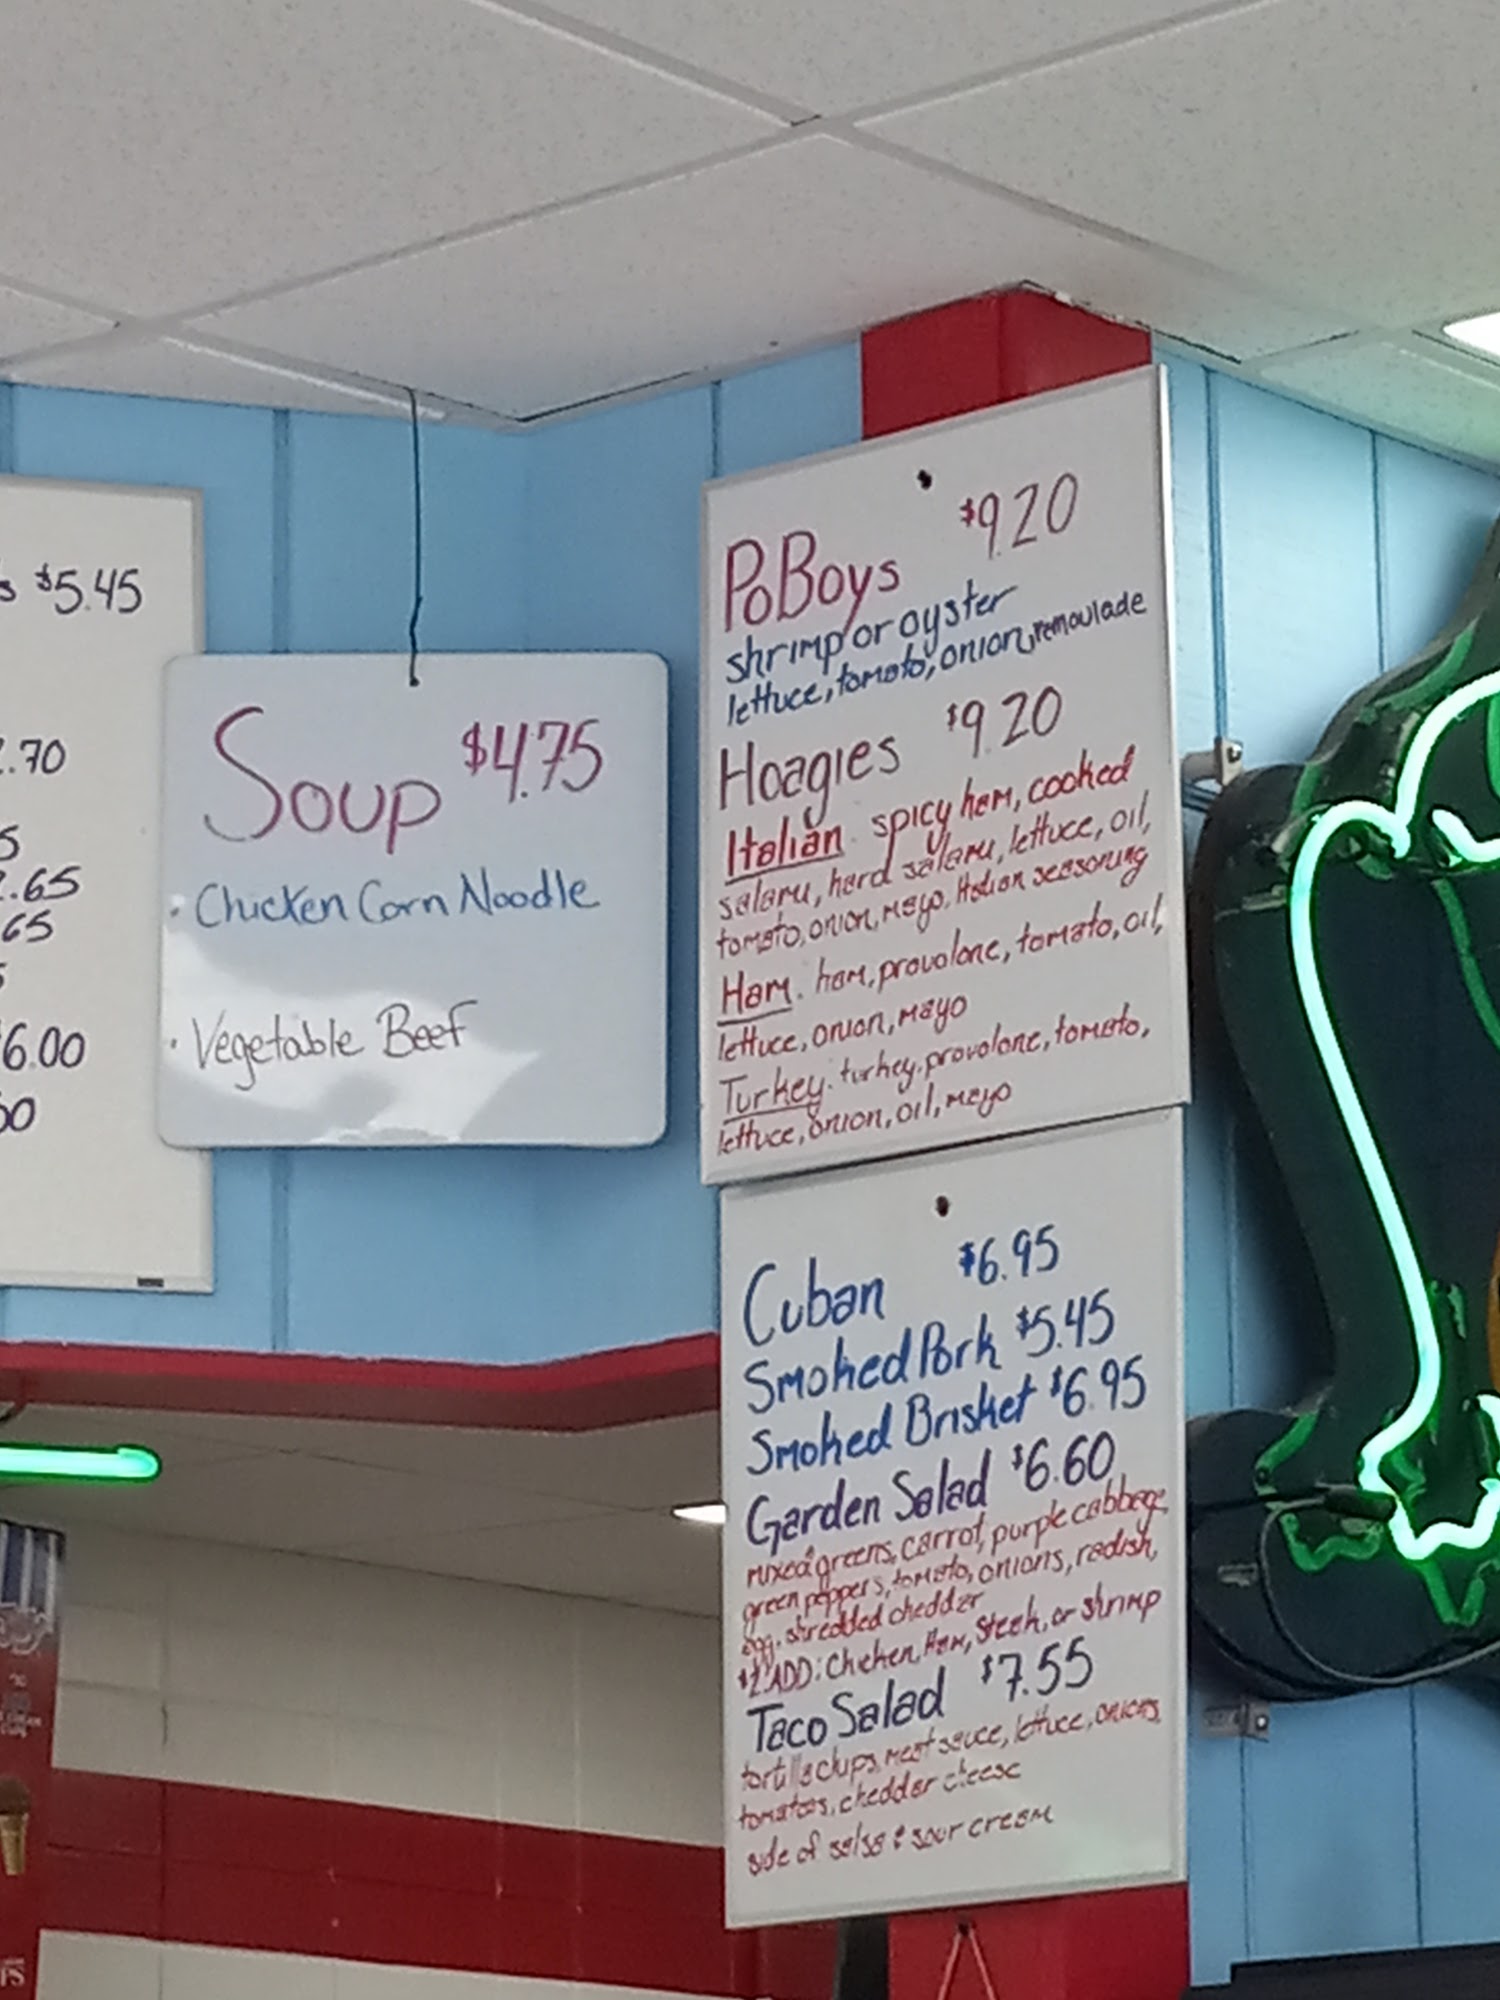 s $5.45
.70
5
.65
65
6.00
Soup $4.75
· Chicken Corn Noodle
· Vegetable Beef
PoBoys $9.20
shrimp or oyster
lettuce, tomato, onion, remoulade
Hoagies $9.20
Italian. spicy ham, cooked
salami, hard salami, lettuce, oil,
tomato, onion, mayo, Italian seasoning
Ham. ham, provolone, tomato, oil,
lettuce, onion, mayo
Turkey. turkey, provolone, tomato,
lettuce, onion, oil, mayo
Cuban $6.95
Smoked Pork $5.45
Smoked Brisket $6.95
Garden Salad $6.60
mixed greens, carrot, purple cabbage,
green peppers, tomato, onions, radish,
egg, shredded cheddar
ADD: Chicken, Ham, Steak, or shrimp
Taco Salad $7.55
tortilla chips, meat sauce, lettuce, onions,
tomatoes, cheddar cheese
side of salsa & sour cream